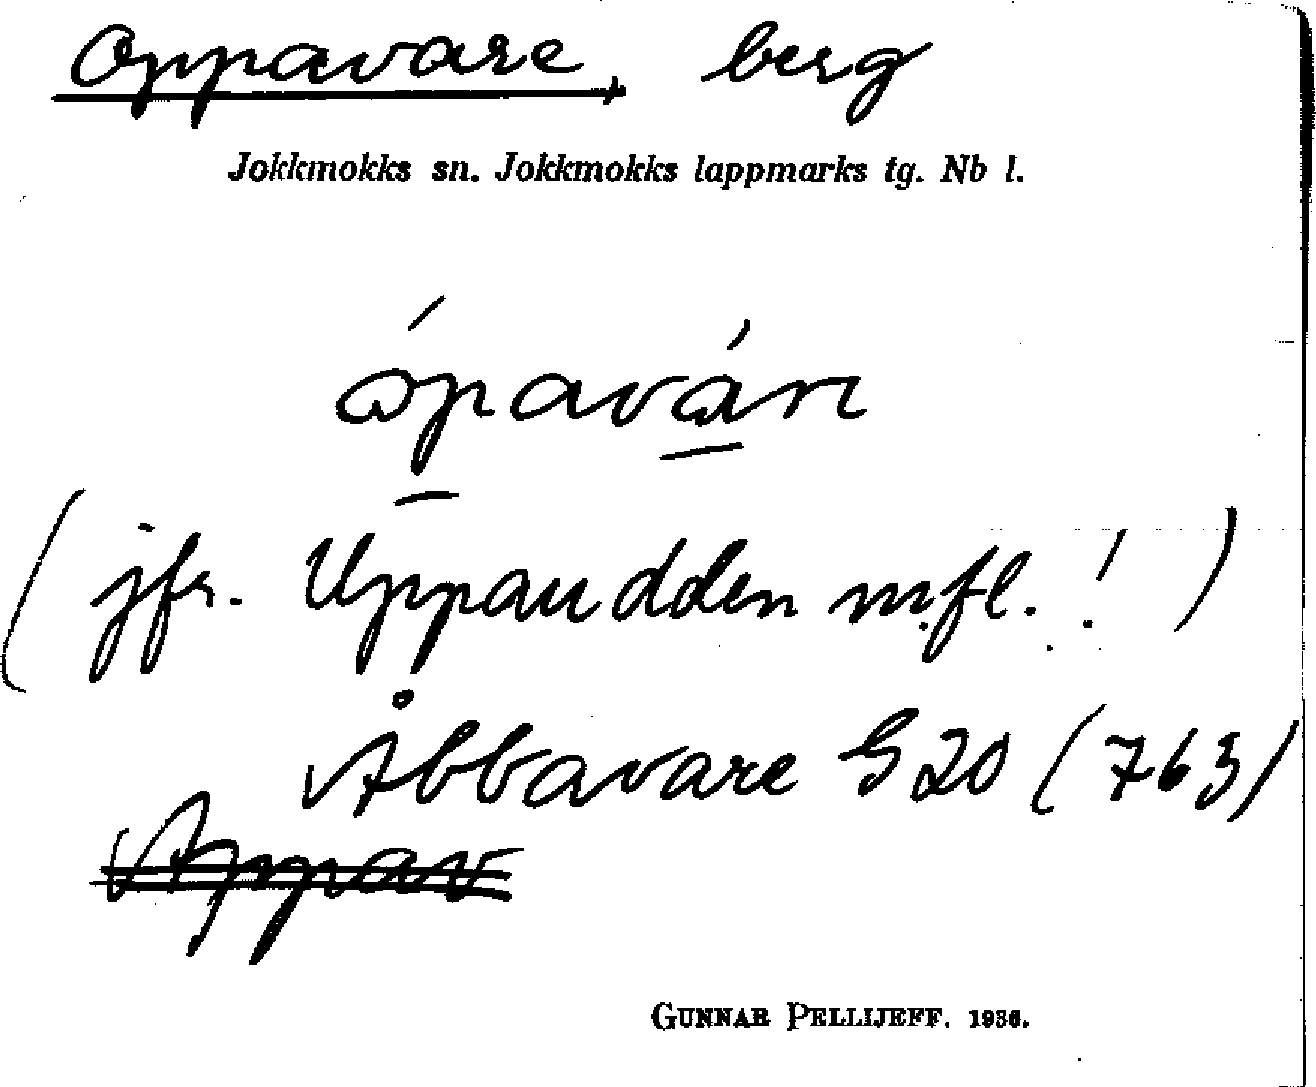 Oppavare, berg
Jokkmokks sn. Jokkmokks lappmarks tg. Nb l.
ɷ́pavári
(jfr. Uppaudden mfl.!)
Åbbavare G20 (763)
Appav
GUNNAR PELLIJEFF. 1936.